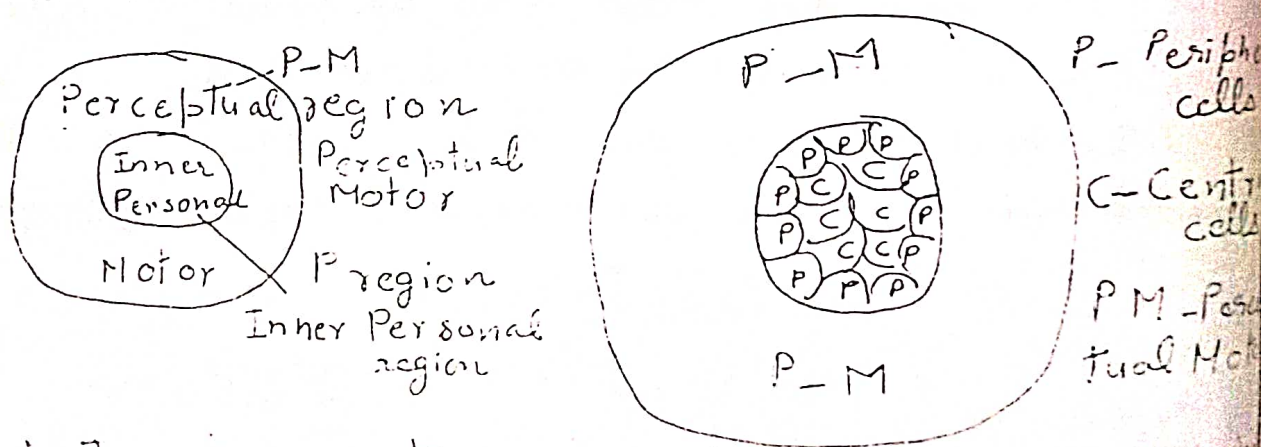 P-M
Perceptual region
Inner
Personal
Perceptual
Motor
Motor
P region
Inner Personal
region
P-M
P P P
P C C P
P C C P
P C C P
P P P
P-M
P- Periphe
cells
C- Centr
cells
PM-Perc
tual Mot